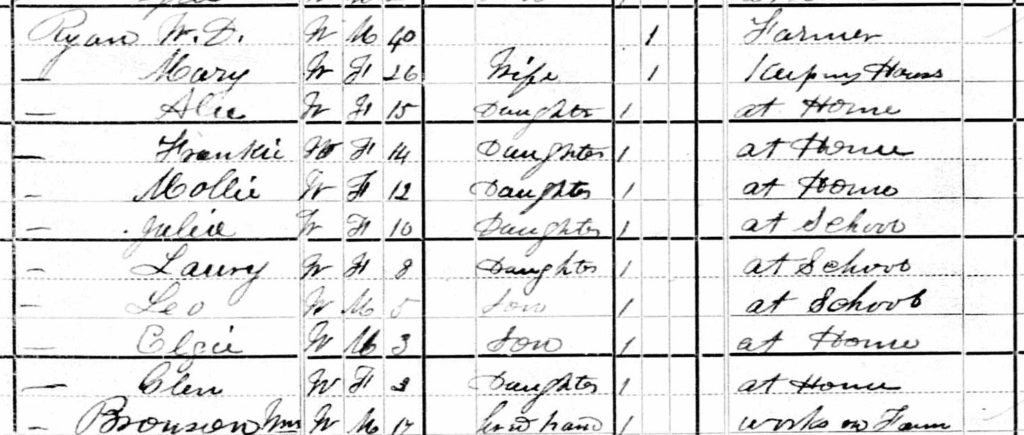 Ryan W. D. W M 40 1 Farmer
— Mary W F 26 Wife 1 Keeping House
— Alie W F 15 Daughter 1 at Home
— Frankie W F 14 Daughter 1 at Home
— Mollie W F 12 Daughter 1 at Home
Julia W F 10 Daughter 1 at School
— Laury W F 8 Daughter 1 at School
— Leo W M 5 Son 1 at School
— Elzie W M 3 Son 1 at Home
— Glen W F Daughter 1 at Home
— Bronson Wm W M 17 1 works on Farm